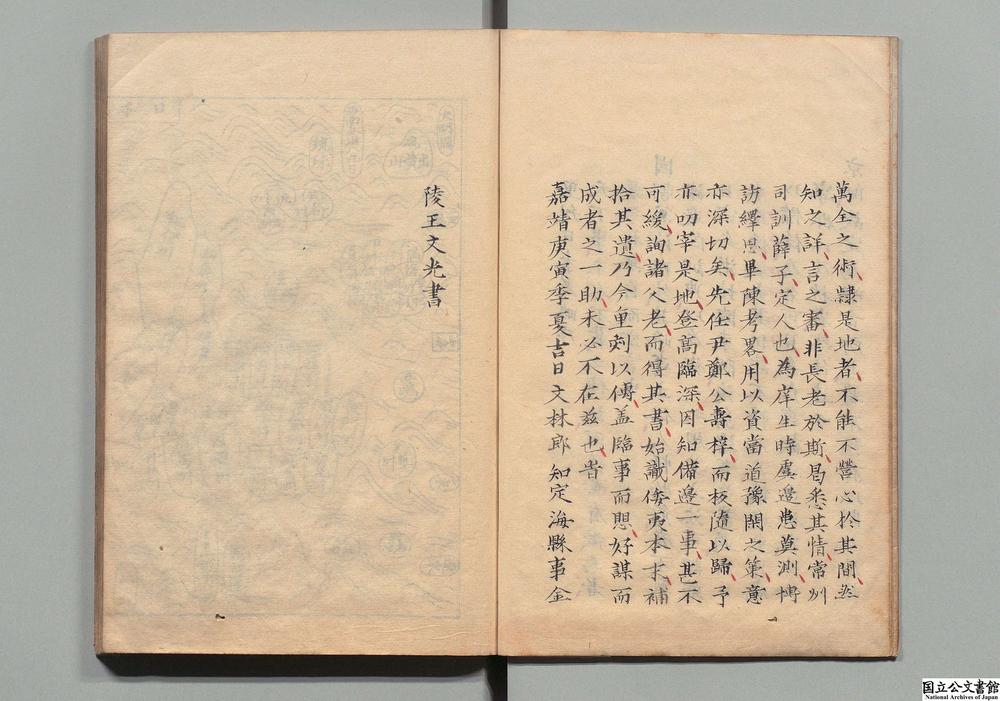 萬全之術隸是地者不能不營心於其間然
知之詳言之審非長老於斯曷悉其情常州
司訓薛子定人也為庠生時虞邊患莫測博
訪繹思畢陳考畧用以資當道豫閑之策意
亦深切矣先任尹鄭公壽梓而板隨以歸予
亦叨宰是地登高臨深因知備邊一事甚不
可緩詢諸父老而得其書始識倭夷本末補
拾其遺乃令重刻以傳盖臨事而思好謀而
成者之一助未必不在兹也旹
嘉靖庚寅季夏吉日文林郎知定海縣事金
陵王文光書
国立公文書館
National Archives of Japan